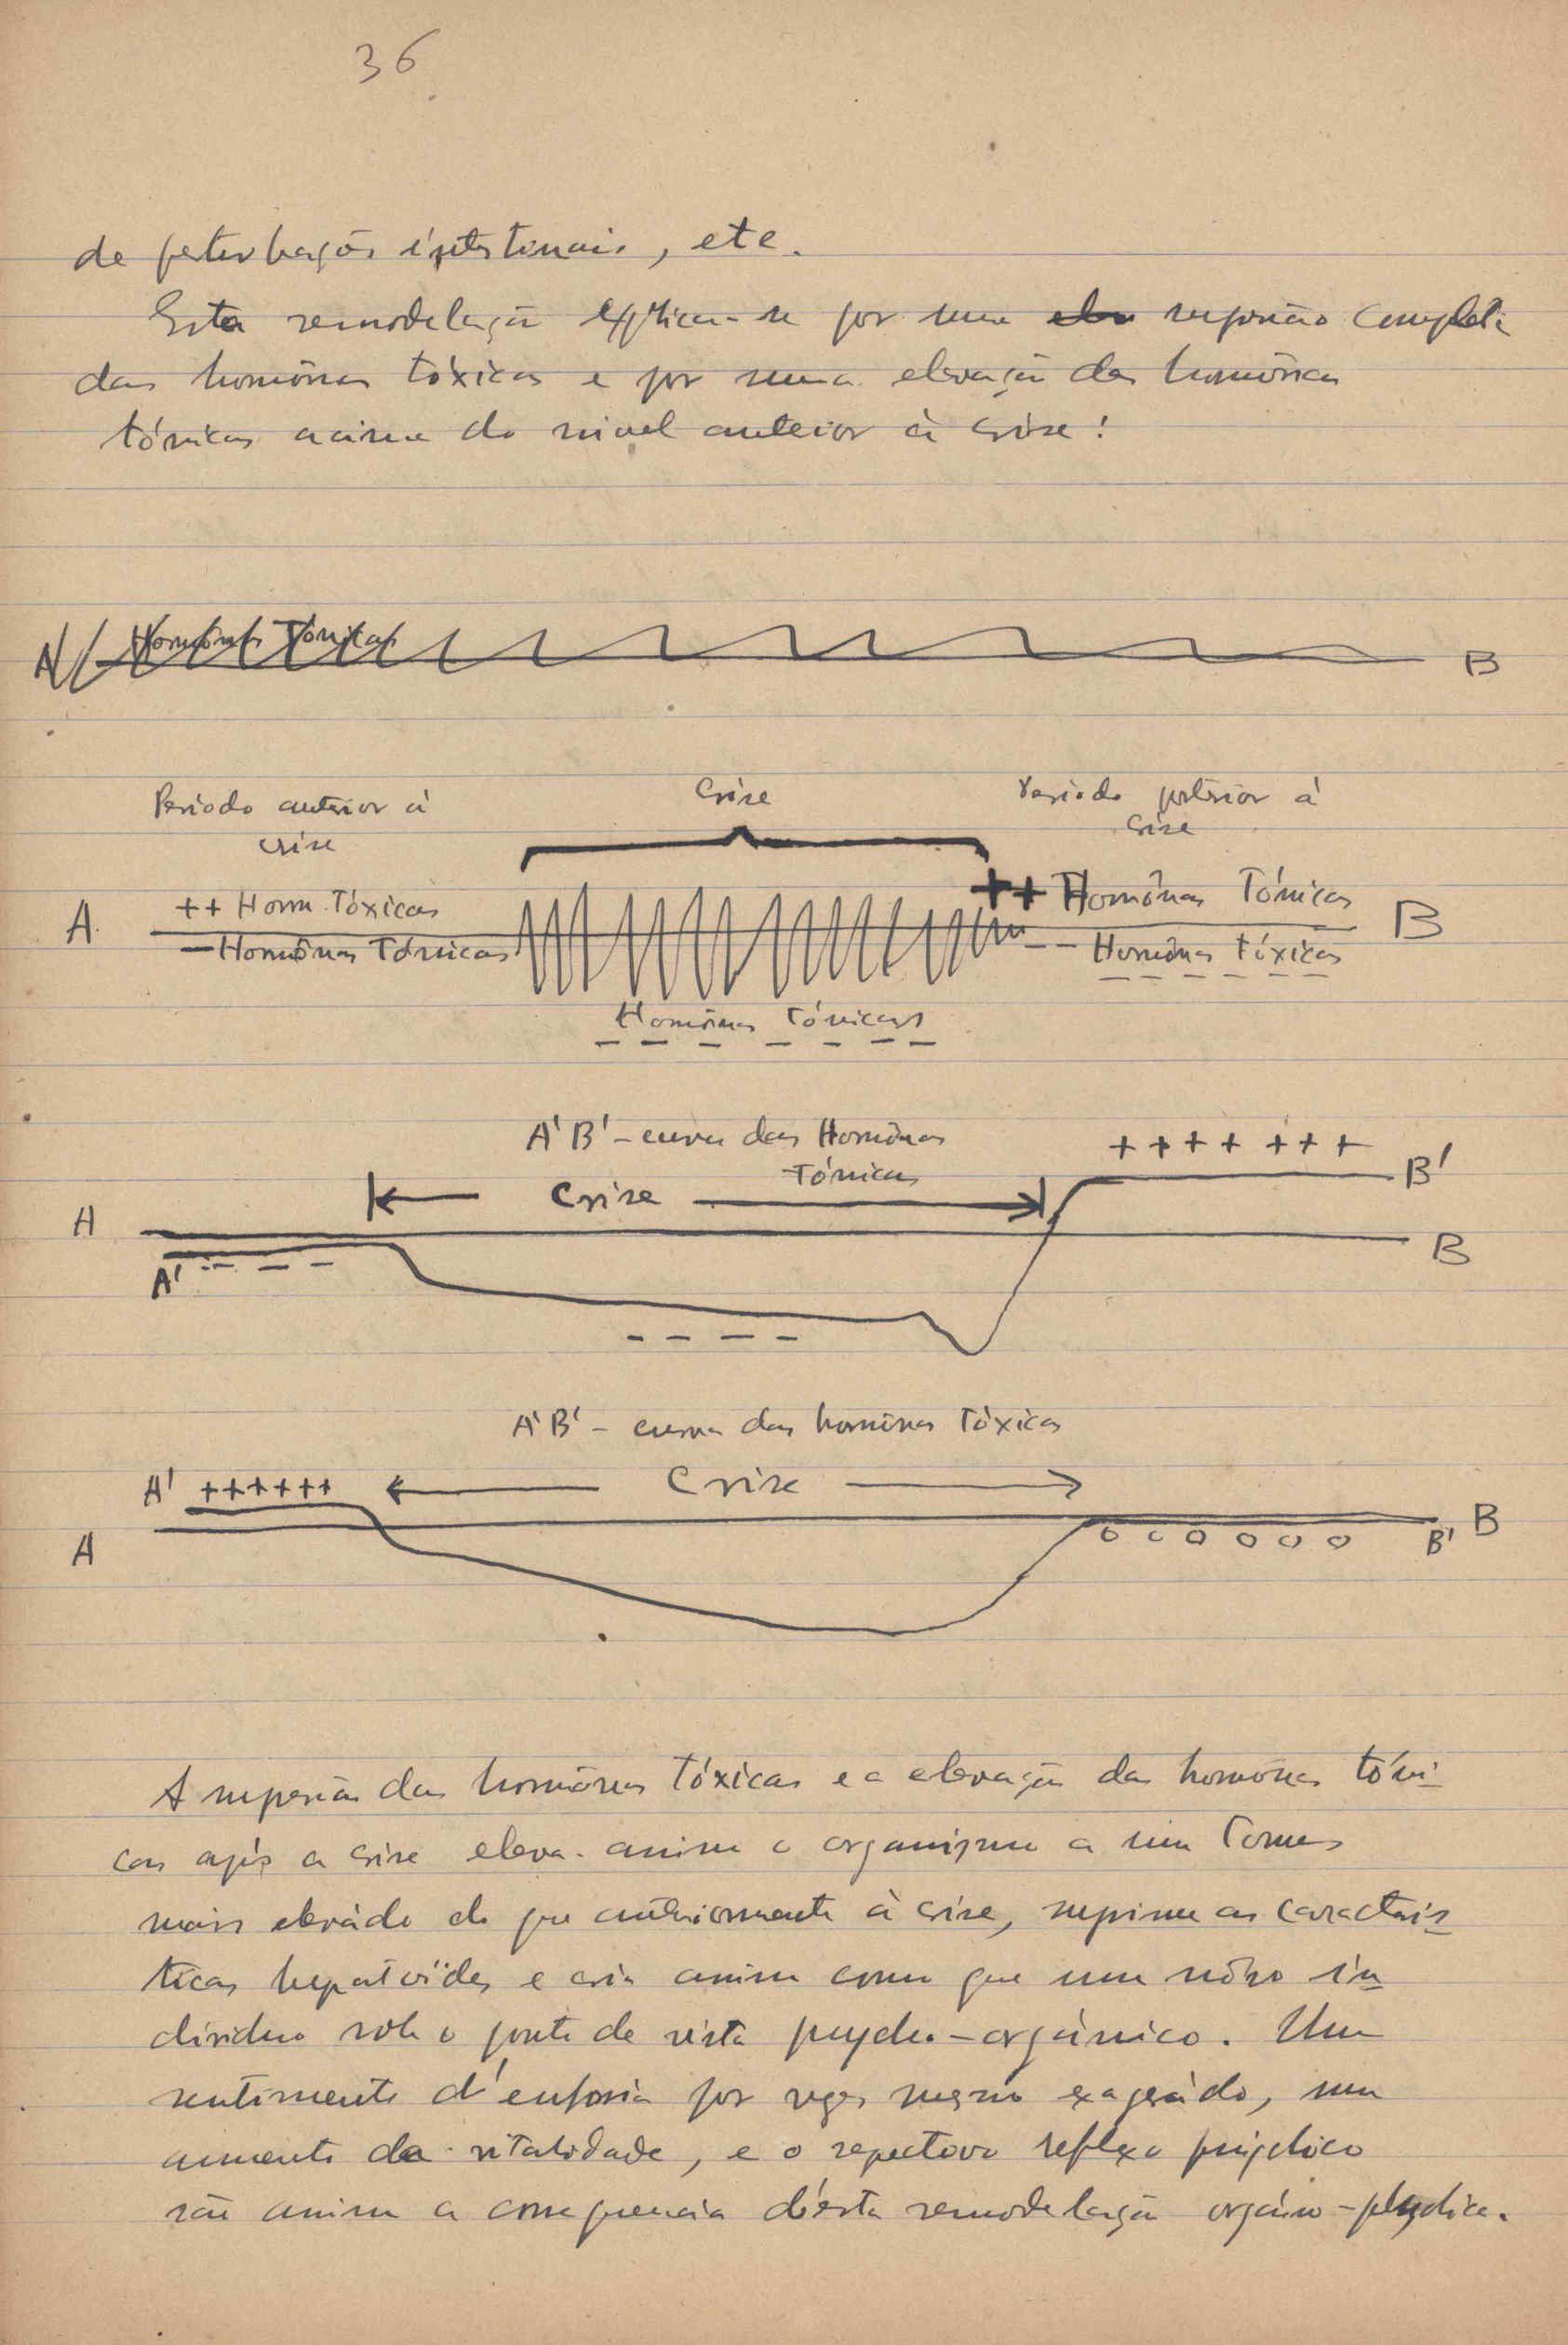 36
de perturbações intestinais, etc.
Esta remodelação explica-se por uma supressão completa
das homônas tóxicas e por uma elevação das homônas
tónicas acima do nivel anterior à crise:
A Homônas Tónicas B
Periodo anterior à
crise
Crise
Periodo posterior à
crise
A ++ Horm. Tóxicas ++ Homônas Tónicas B
— Homônas Tónicas -- Homônas tóxicas
Homônas Tónicas
A'B' - curva das Homônas
Tónicas
+ + + + + + +
B'
Crise
A
B
A' - - - -
- - - -
A'B' - curva das homônas Tóxicas
A' ++++++ Crise
A B
o o o o o o B'
A supressão das homônas tóxicas e a elevação das homônas tóni-
cas após a crise eleva assim o organismo a um Tonus
mais elevádo do que anteriormente à crise, suprime as caracterís-
ticas hepatoïdes e cria assim como que um nôvo in-
dividuo sob o ponto de vista psycho-orgánico. Um
sentimento d'euforia por vezes mesmo exagerádo, um
aumento da vitalidade, e o respectivo reflexo psíchico
são assim a consequencia d'esta remodelação orgáno-psychica.